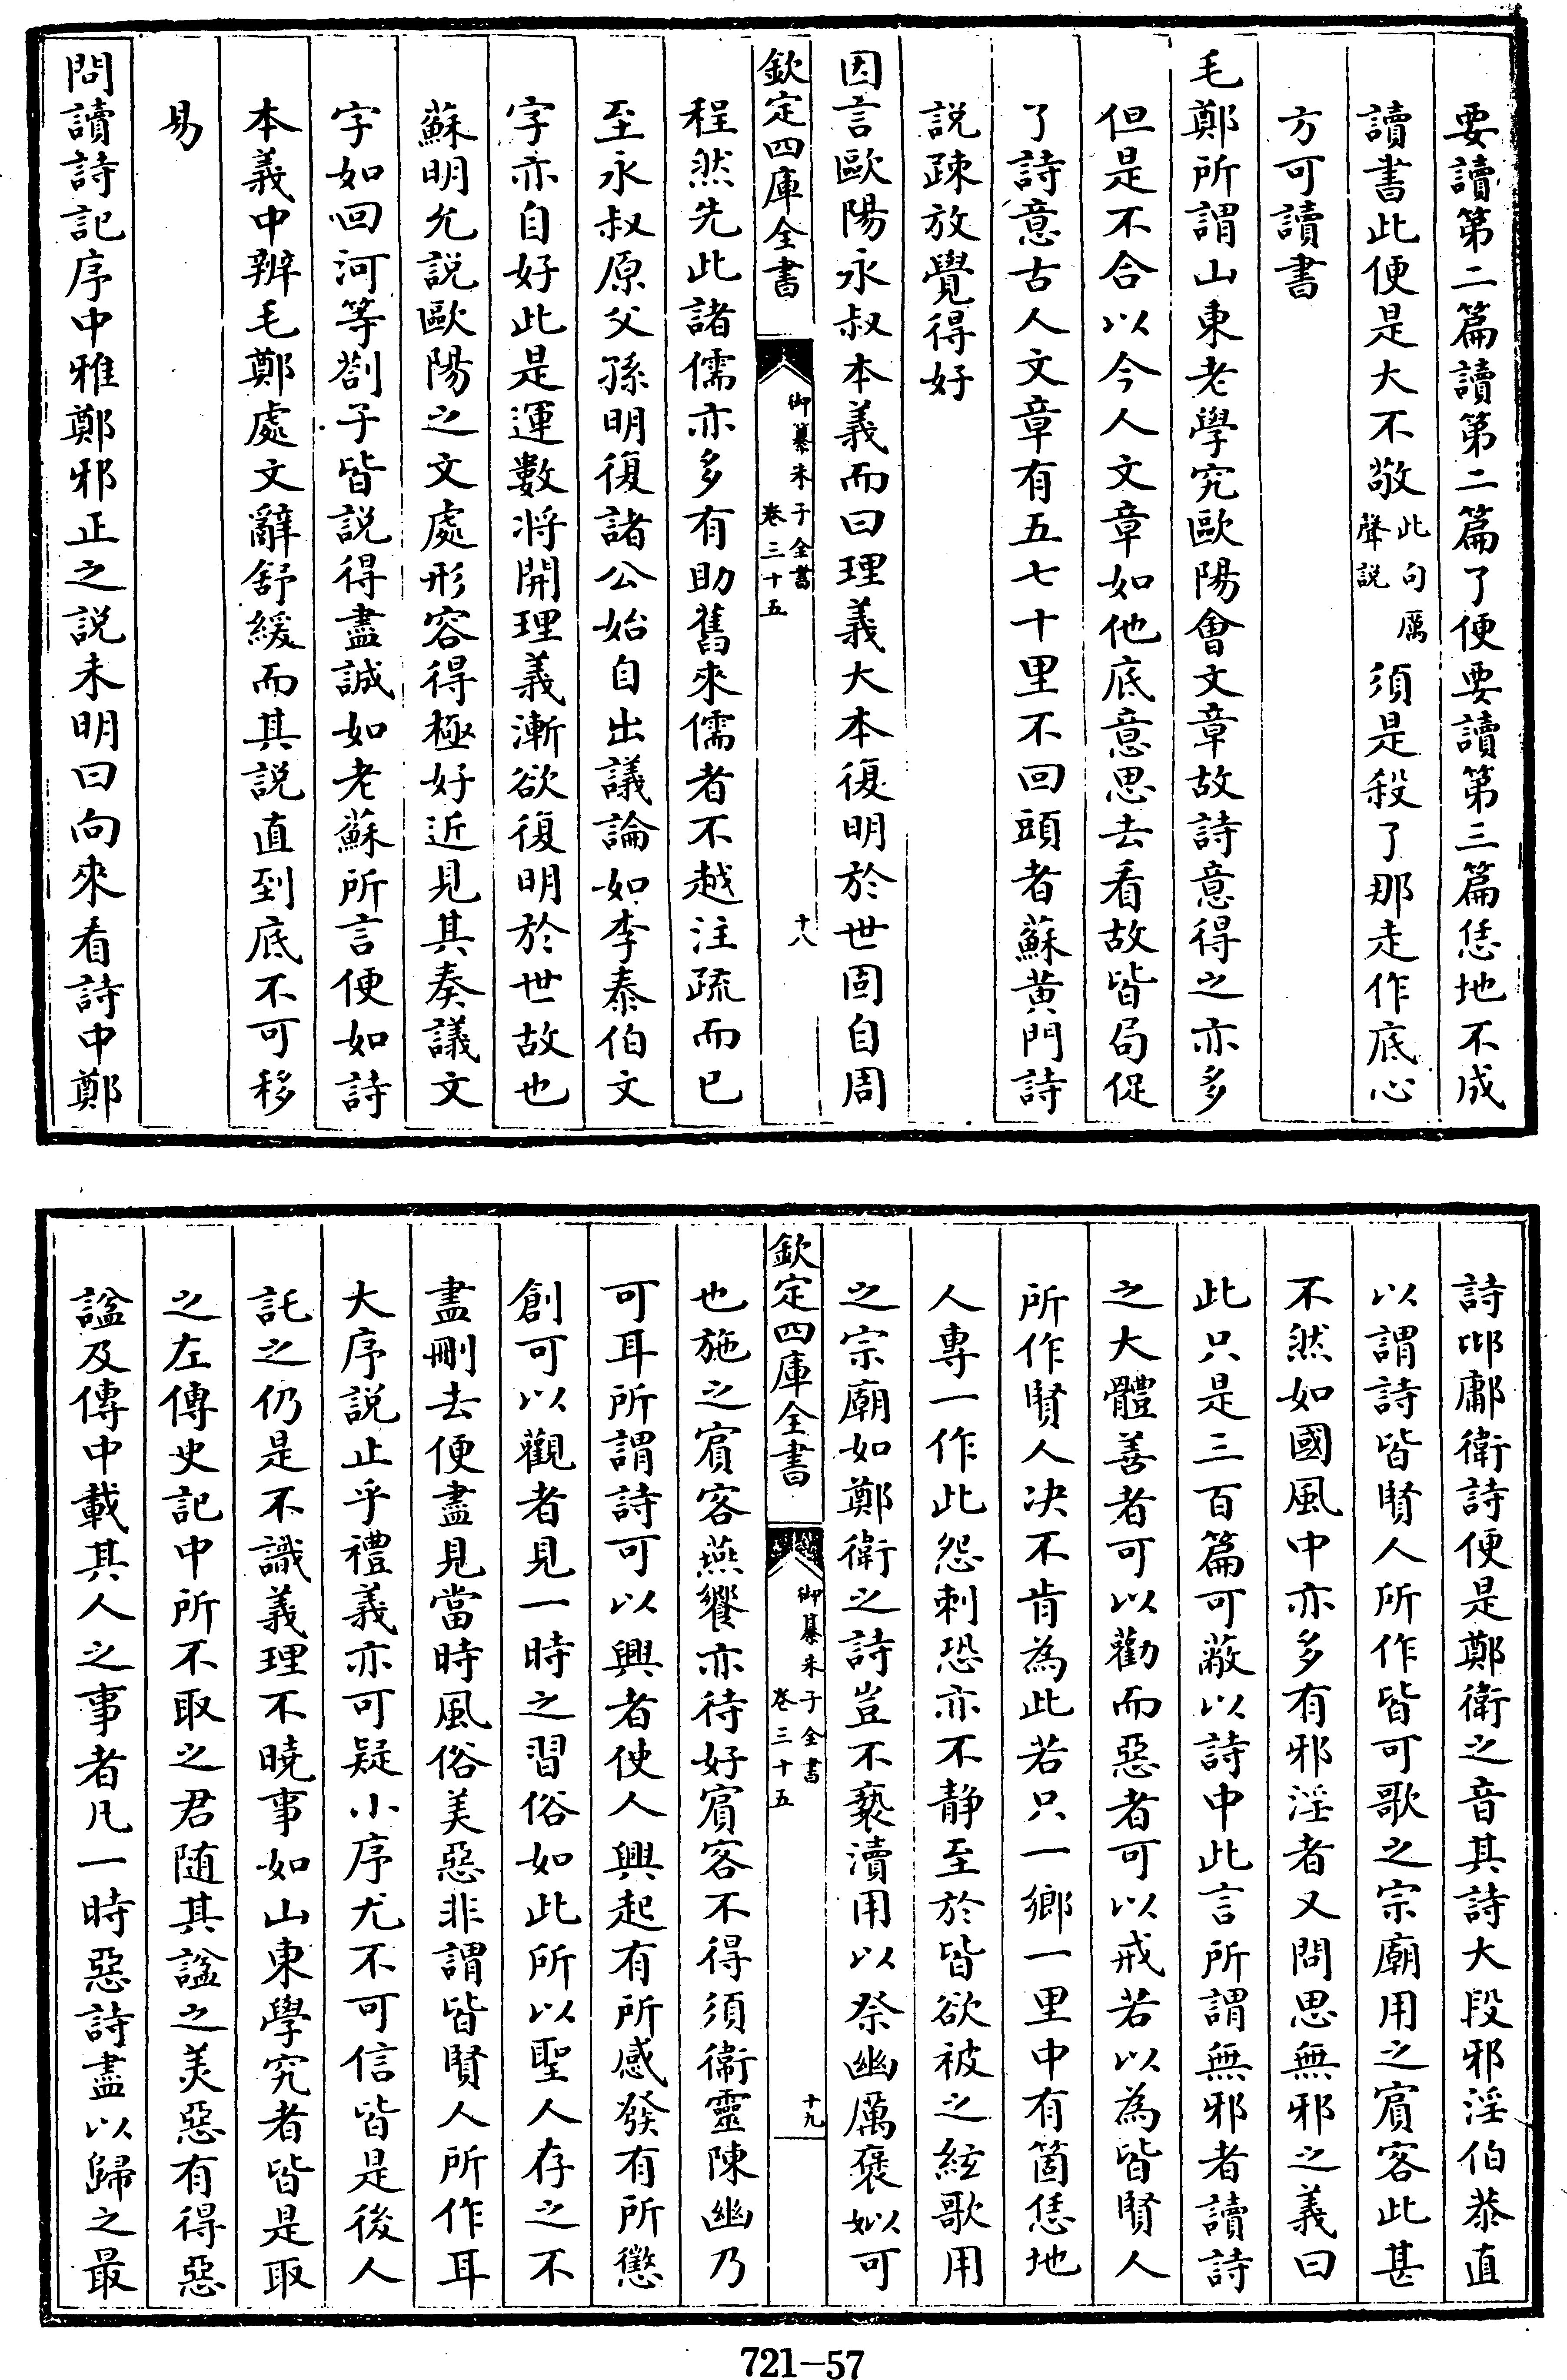 要讀第二篇讀第二篇了便要讀第三篇恁地不成
讀書此便是大不敬此句厲聲説須是殺了那走作底心
方可讀書
毛鄭所謂山東老學究歐陽會文章故詩意得之亦多
但是不合以今人文章如他底意思去看故皆局促
了詩意古人文章有五七十里不回頭者蘇黄門詩
説疎放覺得好
因言歐陽永叔本義而曰理義大本復明於世固自周
欽定四庫全書
御纂朱子全書
卷三十五
十八
程然先此諸儒亦多有助舊來儒者不越注疏而已
至永叔原父孫明復諸公始自出議論如李泰伯文
字亦自好此是運數將開理義漸欲復明於世故也
蘇明允説歐陽之文處形容得極好近見其奏議文
字如回河等劄子皆説得盡誠如老蘇所言便如詩
本義中辨毛鄭處文辭舒緩而其説直到底不可移
易
問讀詩記序中雅鄭邪正之説未明曰向來看詩中鄭
詩邶鄘衛詩便是鄭衛之音其詩大段邪淫伯恭直
以謂詩皆賢人所作皆可歌之宗廟用之賔客此甚
不然如國風中亦多有邪淫者又問思無邪之義曰
此只是三百篇可蔽以詩中此言所謂無邪者讀詩
之大體善者可以勸而惡者可以戒若以為皆賢人
所作賢人决不肯為此若只一鄉一里中有箇恁地
人專一作此怨刺恐亦不静至於皆欲被之絃歌用
之宗廟如鄭衛之詩豈不褻瀆用以祭幽厲褒姒可
欽定四庫全書
御纂朱子全書
卷三十五
十九
也施之賔客燕饗亦待好賔客不得須衛靈陳幽乃
可耳所謂詩可以興者使人興起有所感發有所懲
創可以觀者見一時之習俗如此所以聖人存之不
盡刪去便盡見當時風俗美惡非謂皆賢人所作耳
大序説止乎禮義亦可疑小序尤不可信皆是後人
託之仍是不識義理不曉事如山東學究者皆是取
之左傳史記中所不取之君随其諡之美惡有得惡
諡及傳中載其人之事者凡一時惡詩盡以歸之最
721-57